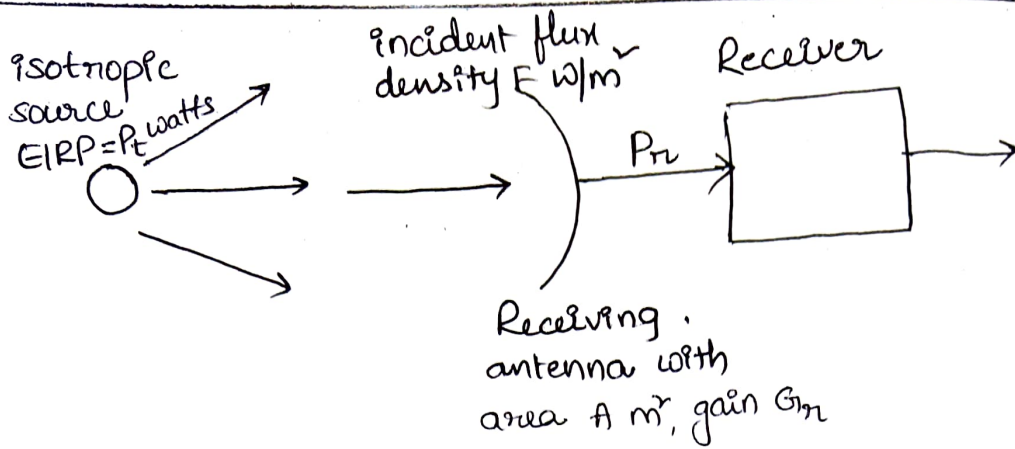 isotropic
source
EIRP = Pt watts
incident flux
density F W/m²
Receiver
Pr
Receiving
antenna with
area A m², gain Gr